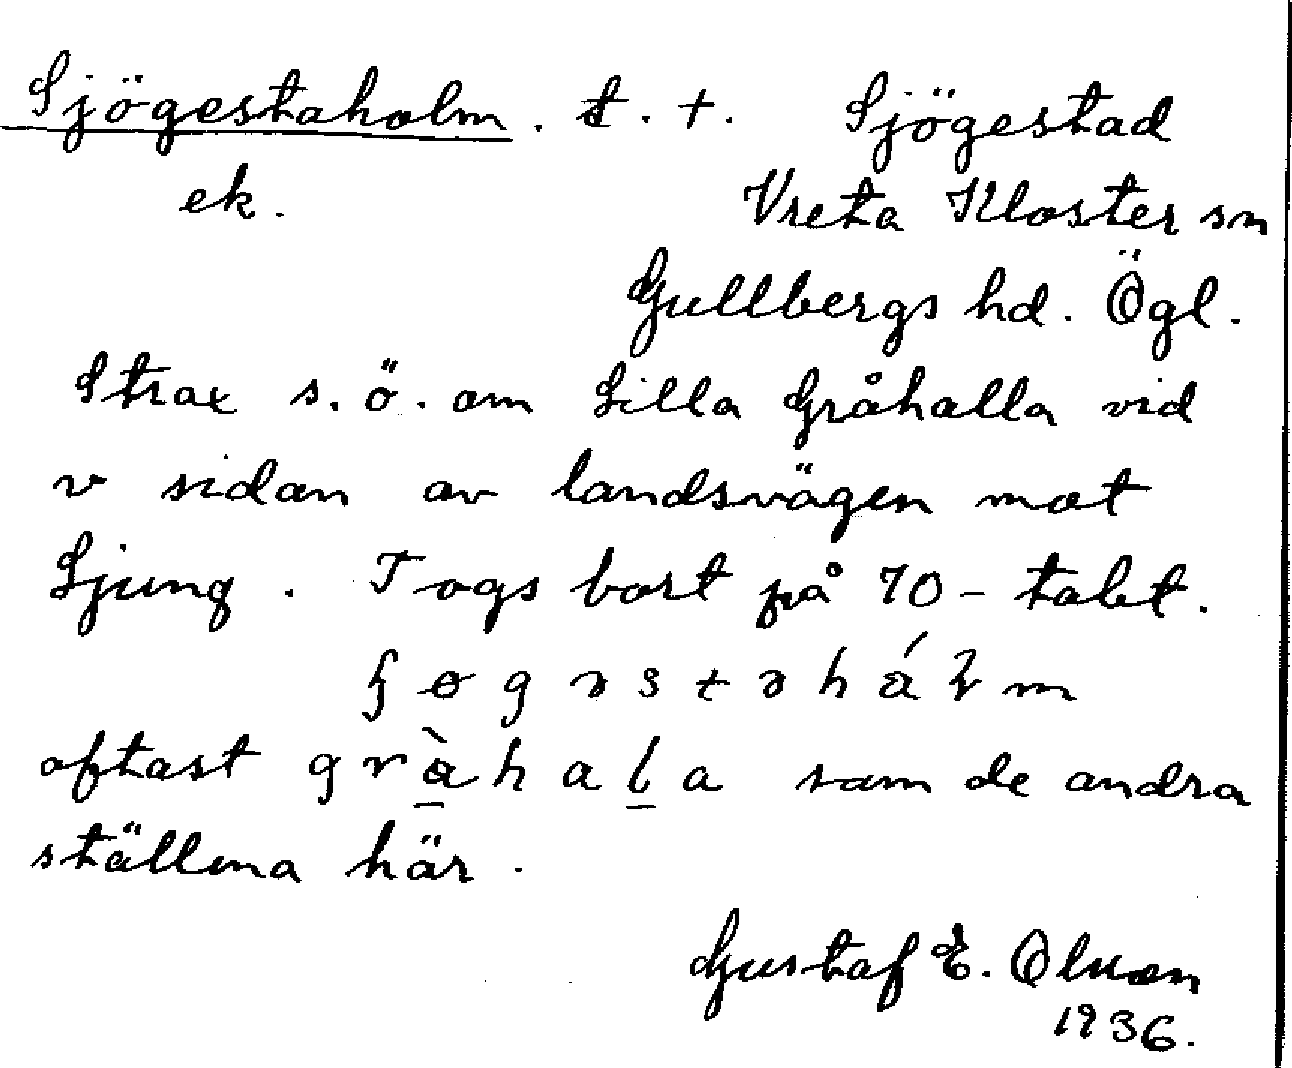 Sjögestaholm. t. +. Sjögestad
ek. Vreta Kloster sn
Gullbergs hd. Ögl.
Strax s.ö. om Lilla Gråhalla vid
v sidan av landsvägen mot
Ljung. Togs bort på 70-talet.
oftast gràhala som de andra
ställena här.
Gustaf E. Olsson
1936.